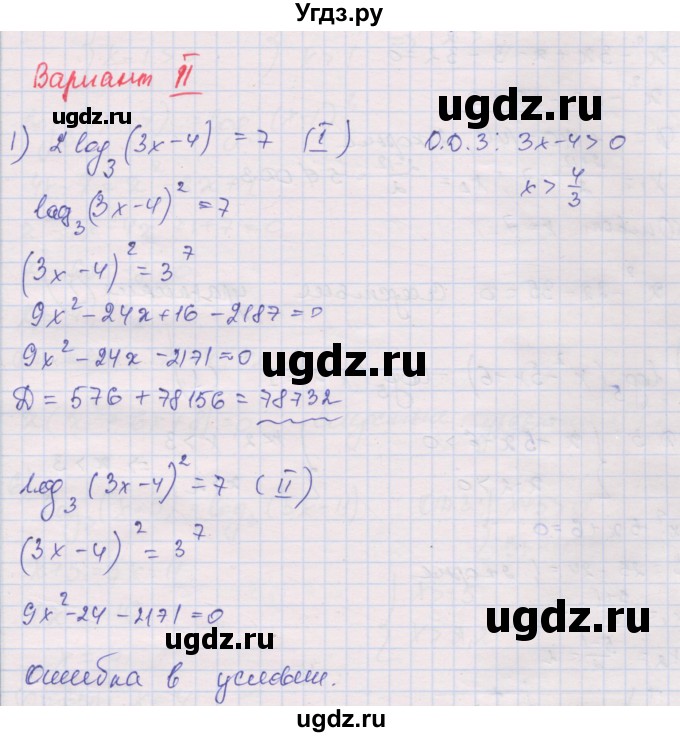 Угдз.ру
Вариант II
ugdz.ru ugdz.ru
1) 2log₃(3x-4) = 7 (I) О.О.З: 3x-4>0
log₃(3x-4)² = 7 x > 4/3
ugdz.ru
(3x-4)² = 3⁷
9x² - 24x + 16 - 2187 = 0
ugdz.ru
9x² - 24x - 2171 = 0
ugdz.ru
D = 576 + 78156 = 78732
ugdz.ru
log₃(3x-4)² = 7 (II)
ugdz.ru
(3x-4)² = 3⁷
9x² - 24 - 2171 = 0
ugdz.ru ugdz.ru
Ошибка в условии.
ugdz.ru